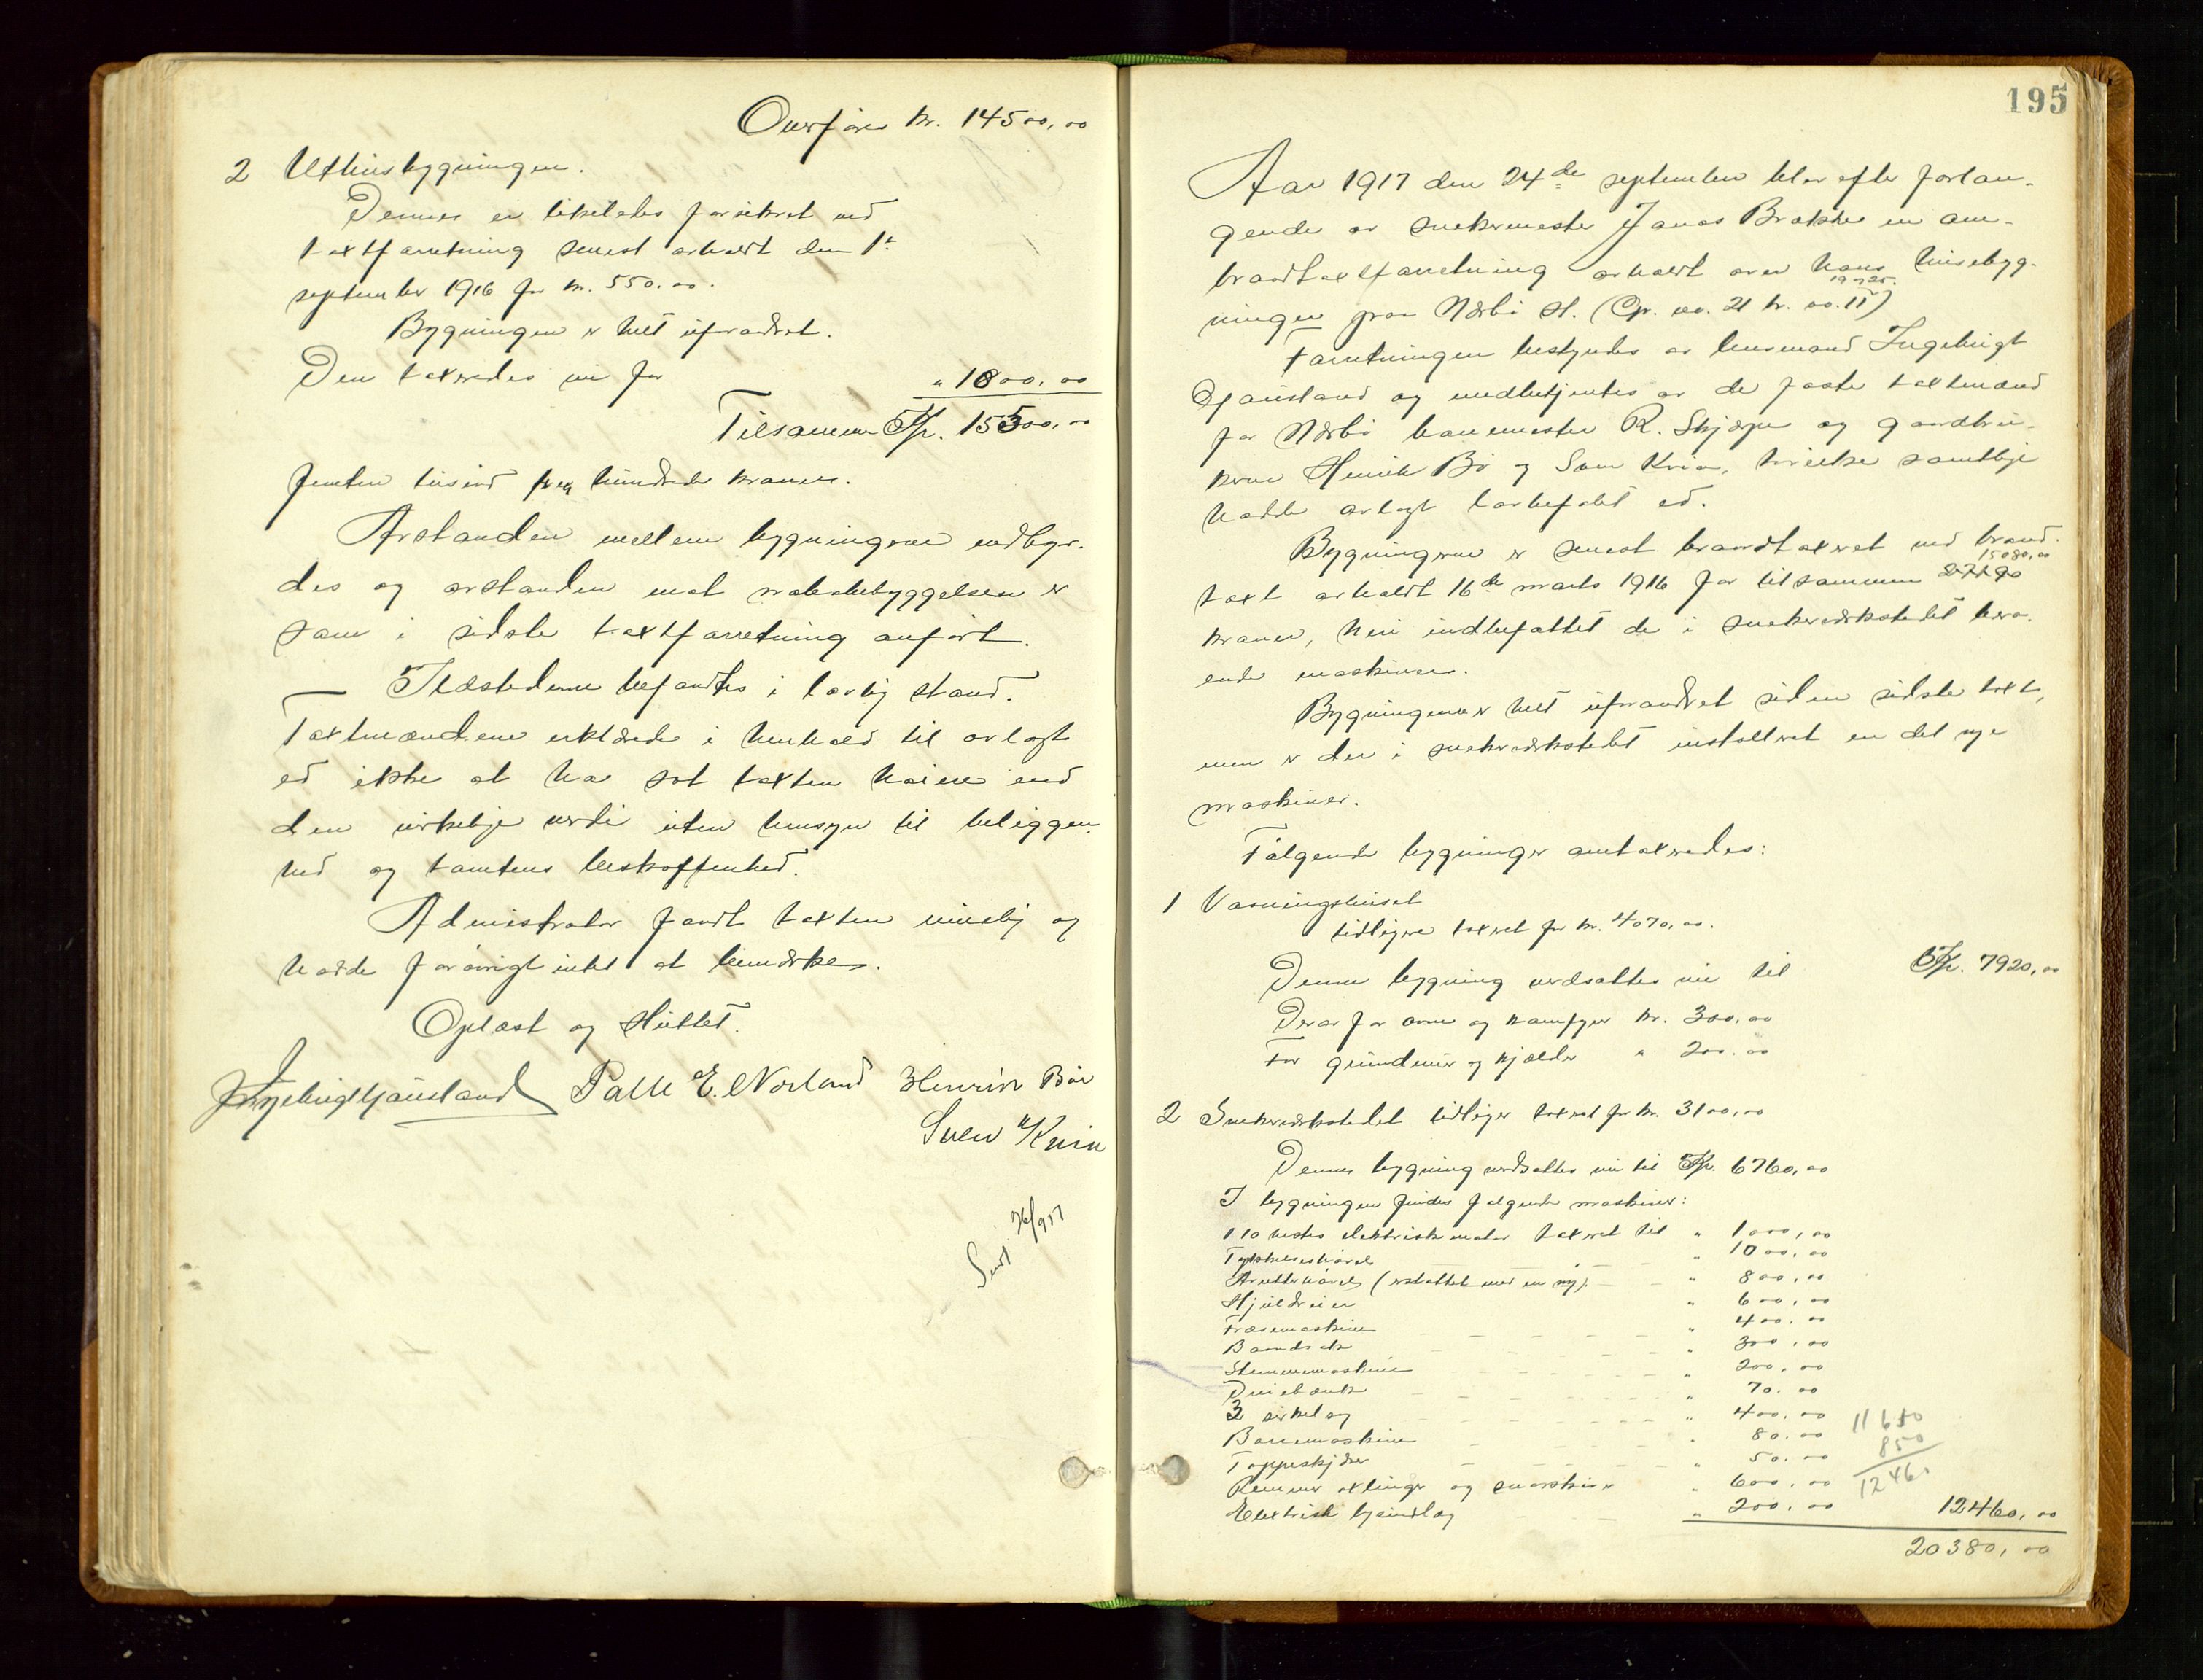 Overføres kr. 14500,00
2 Uthusbygningen.
Denne er likeledes forsikret ved
taxtforretning senest avholdt den 1ste
september 1916 for kr. 550.00.
Bygningen er helt uforandret.
Den taxeredes nu for " 1000,00
Tilsammen Kr. 15500,00
femten tusind fem hundrede kroner.
Avstanden mellem bygningerne indbyr-
des og avstanden mot nabobebyggelsen er
som i sidste taxtforretning anført.
Ildstederne befandtes i lovlig stand.
Taxtmændene erklærede i henhold til avlagt
ed ikke at ha sat taxten høiere end
den virkelige verdi uten hensyn til beliggen-
hed og tomtens beskaffenhed.
Admistrator fandt taxten rimelig og
hadde forøvrigt intet at bemærke.
Oplæst og sluttet.
Ingebrigt Gausland Palle E. Norland Henrik Bø
Sven K Kvia
Sendt 26/9 17
195
Aar 1917 den 24de september blev efter forlan-
gende av snekermester Jonas Brække en om-
brandtaxtforretning avholdt over hans husebyg-
19 og 25.
ningen paa Nærbø st. (Gr. no. 21 br. no. 11)
Forretningen bestyredes av lensmand Ingebrigt
Gausland og medbetjentes av de faste taxtmænd
for Nærbø banemester R. Skjæpe og gaardbru-
kerne Henrik Bø og Sven Kvia, hvilke samtlige
hadde avlagt lovbefalet ed.
Bygningerne er senest brandtaxeret ved brand-
15080,00
taxt avholdt 16de marts 1916 for tilsammen
kroner, heri indbefattet de i snekerverkstedet bero-
ende maskiner.
Bygningerne er helt uforandret siden sidste taxt,
men er der i snekerverkstedet installeret en del nye
maskiner.
Følgende bygninger omtaxeredes:
1 Vaaningshuset
tidligere taxeret for kr. 4070,00.
Denne bygning verdsattes nu til Kr. 7920,00
Derav for ovne og komfyrer kr. 300,00
For grundmur og kjælder " 200.00
2 Snekerverkstedet tidligere taxeret for kr. 3100,00
Denne bygning verdsattes nu til Kr. 6760,00
I bygningen findes følgende maskiner:
1 10 hestes elektriske motor taxeret til " 1000,00
Tykkelseshøvel " 1000,00
Avretterhøvel (erstattet med en ny) " 800,00
Hjuldreier " 600,00
Fræsemaskine " 400.00
Baandsak " 300,00
Stemmemaskine " 200,00
Dreiebænk " 70.00
3 sirkelsag " 400,00
Boremaskine " 80.00
Tappeskjær " 50.00
Remmer axlinger og remskiver " 600,00
Elektrisk lysindlæg " 200,00 12460,00
11610
850
12460
20380,00